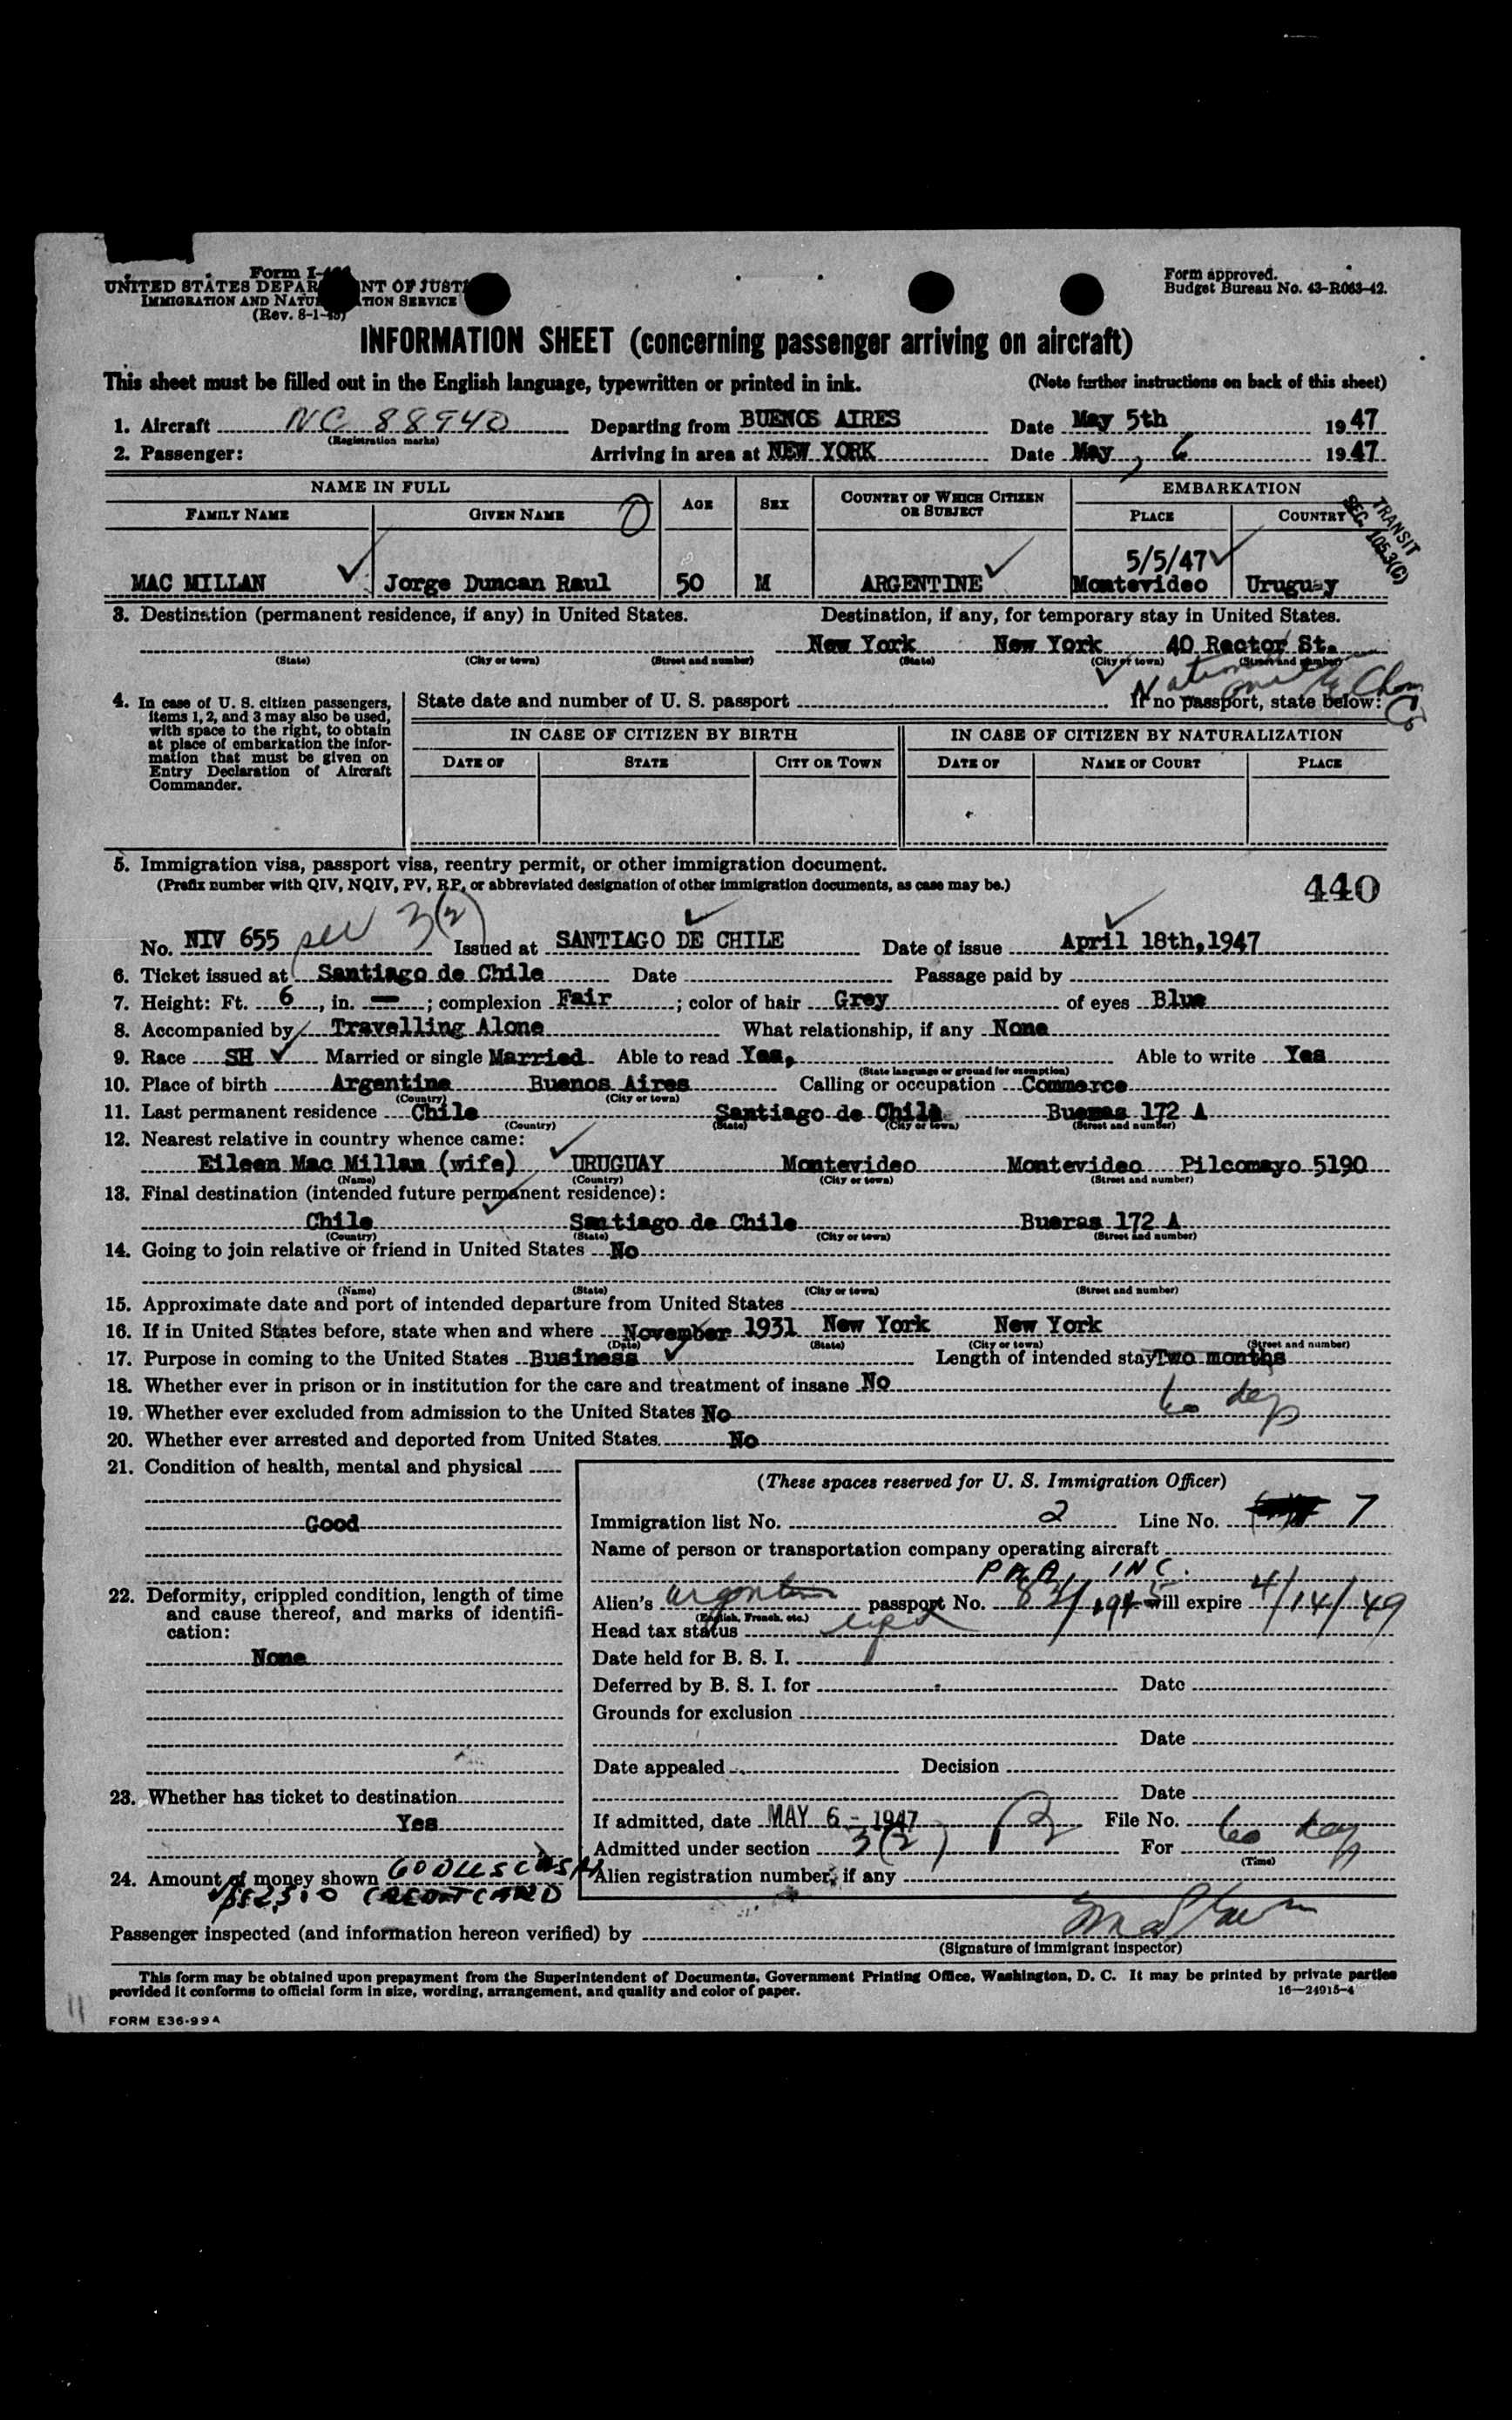 Form I-
UNITED STATES DEPAR NT OF JUST
IMMIGRATION AND NATU TION SERVICE
(Rev. 8-1-45)
Form approved.
Budget Bureau No. 43-R063-42.
INFORMATION SHEET (concerning passenger arriving on aircraft)
This sheet must be filled out in the English language, typewritten or printed in ink. (Note further instructions on back of this sheet)
1. Aircraft NC 88940 Departing from BUENOS AIRES Date May 5th 1947
(Registration marks)
2. Passenger: Arriving in area at NEW YORK Date May 6 1947
NAME IN FULL AGE SEX COUNTRY OF WHICH CITIZEN OR SUBJECT EMBARKATION
FAMILY NAME GIVEN NAME PLACE COUNTRY
TRANSIT
SEC. 105.3(C)
5/5/47
MAC MILLAN Jorge Duncan Raul 50 M ARGENTINE Montevideo Uruguay
3. Destination (permanent residence, if any) in United States. Destination, if any, for temporary stay in United States.
New York New York 40 Rector St.
(State) (City or town) (Street and number) (State) (City or town) (Street and number)
4. In case of U. S. citizen passengers, items 1, 2, and 3 may also be used, with space to the right, to obtain at place of embarkation the information that must be given on Entry Declaration of Aircraft Commander.
State date and number of U. S. passport If no passport, state below:
IN CASE OF CITIZEN BY BIRTH IN CASE OF CITIZEN BY NATURALIZATION
DATE OF STATE CITY OR TOWN DATE OF NAME OF COURT PLACE
5. Immigration visa, passport visa, reentry permit, or other immigration document.
(Prefix number with QIV, NQIV, PV, RP, or abbreviated designation of other immigration documents, as case may be.)
440
No. NIV 655 3(2) Issued at SANTIAGO DE CHILE Date of issue April 18th,1947
6. Ticket issued at Santiago de Chile Date Passage paid by
7. Height: Ft. 6, in. —; complexion Fair; color of hair Grey of eyes Blue
8. Accompanied by Travelling Alone What relationship, if any None
9. Race SH Married or single Married Able to read Yes, Able to write Yes
(State language or ground for exemption)
10. Place of birth Argentina Buenos Aires Calling or occupation Commerce
(Country) (City or town)
11. Last permanent residence Chile Santiago de Chile Bueras 172 A
(Country) (State) (City or town) (Street and number)
12. Nearest relative in country whence came:
Eileen Mac Millan (wife) URUGUAY Montevideo Montevideo Pilcomayo 5190
(Name) (Country) (City or town) (Street and number)
13. Final destination (intended future permanent residence):
Chile Santiago de Chile Bueras 172 A
(Country) (State) (City or town) (Street and number)
14. Going to join relative or friend in United States No
(Name) (State) (City or town) (Street and number)
15. Approximate date and port of intended departure from United States
16. If in United States before, state when and where November 1931 New York New York
(Date) (State) (City or town) (Street and number)
17. Purpose in coming to the United States Business Length of intended stay Two months
18. Whether ever in prison or in institution for the care and treatment of insane No
19. Whether ever excluded from admission to the United States No 60 days
20. Whether ever arrested and deported from United States. No
21. Condition of health, mental and physical
Good
22. Deformity, crippled condition, length of time and cause thereof, and marks of identification:
None
23. Whether has ticket to destination
Yes
24. Amount of money shown
CREDIT CARD
(These spaces reserved for U. S. Immigration Officer)
Immigration list No. 2 Line No. 7
Name of person or transportation company operating aircraft
PAA INC.
Alien's passport No. will expire 4/14/49
(English, French, etc.)
Head tax status
Date held for B. S. I.
Deferred by B. S. I. for Date
Grounds for exclusion
Date
Date appealed Decision
Date
If admitted, date MAY 6 - 1947 File No.
Admitted under section 3(2) For 60 days
(Time)
Alien registration number, if any
Passenger inspected (and information hereon verified) by
(Signature of immigrant inspector)
This form may be obtained upon prepayment from the Superintendent of Documents, Government Printing Office, Washington, D. C. It may be printed by private parties
provided it conforms to official form in size, wording, arrangement, and quality and color of paper. 16—24915-4
11
FORM E36-99A